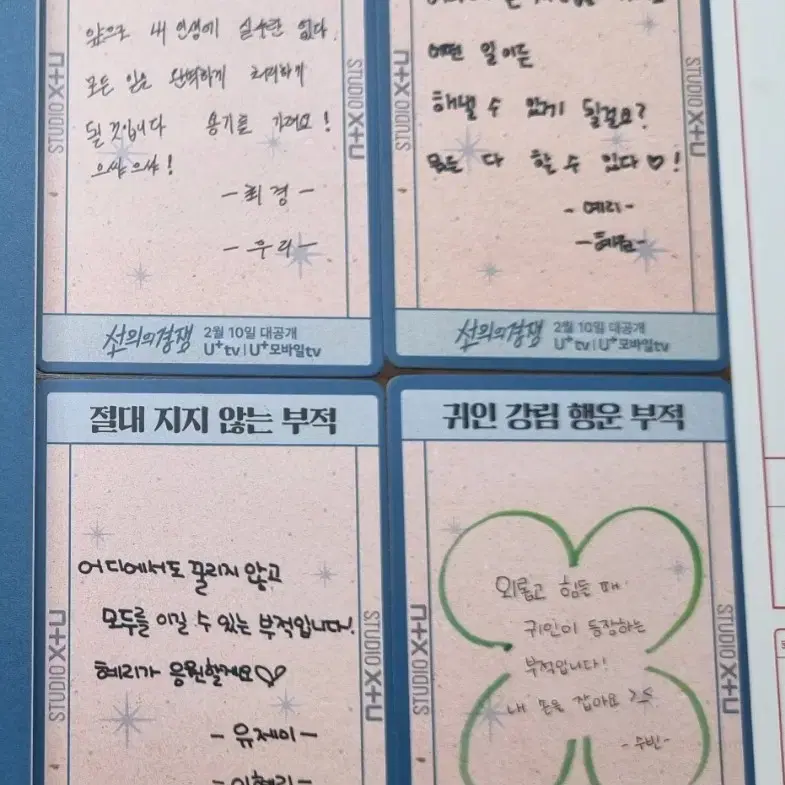 앞으로 내 인생에 실수란 없다
모든 일을 완벽하게 처리하기
될 것입니다 용기를 가져요!
으쌰으쌰!
-최경-
-우리-
STUDIO X+U
STUDIO X+U
선의의경쟁
2월 10일 대공개
U+tv | U+모바일tv
어떤 일이든
해낼 수 있게 될걸요?
모든 다 할 수 있다♡!
-예리-
-혜원-
STUDIO X+U
STUDIO X+U
선의의경쟁
2월 10일 대공개
U+tv | U+모바일tv
절대 지지 않는 부적
어디에서도 꿀리지 않고
모두를 이길 수 있는 부적입니다!
혜리가 응원할게요♡
-유제이-
-이혜리-
STUDIO X+U
STUDIO X+U
귀인 강림 행운 부적
외롭고 힘든 때
귀인이 등장하는
부적입니다!
내 손을 잡아요
-수빈-
STUDIO X+U
STUDIO X+U